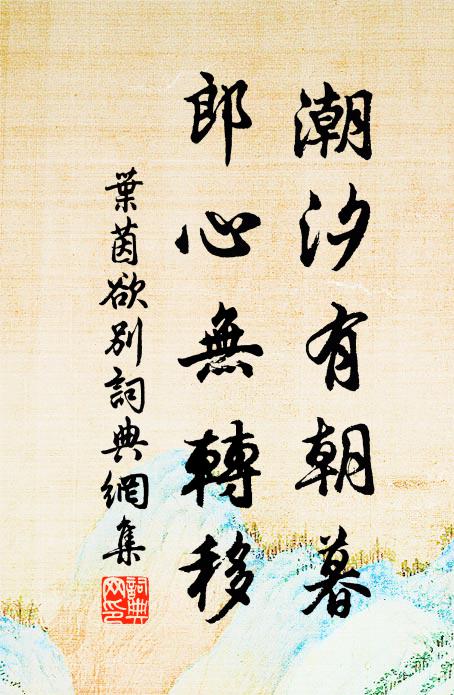 潮汐有朝暮
郎心無轉移
葉茵欲別詞典網集
詞典网印